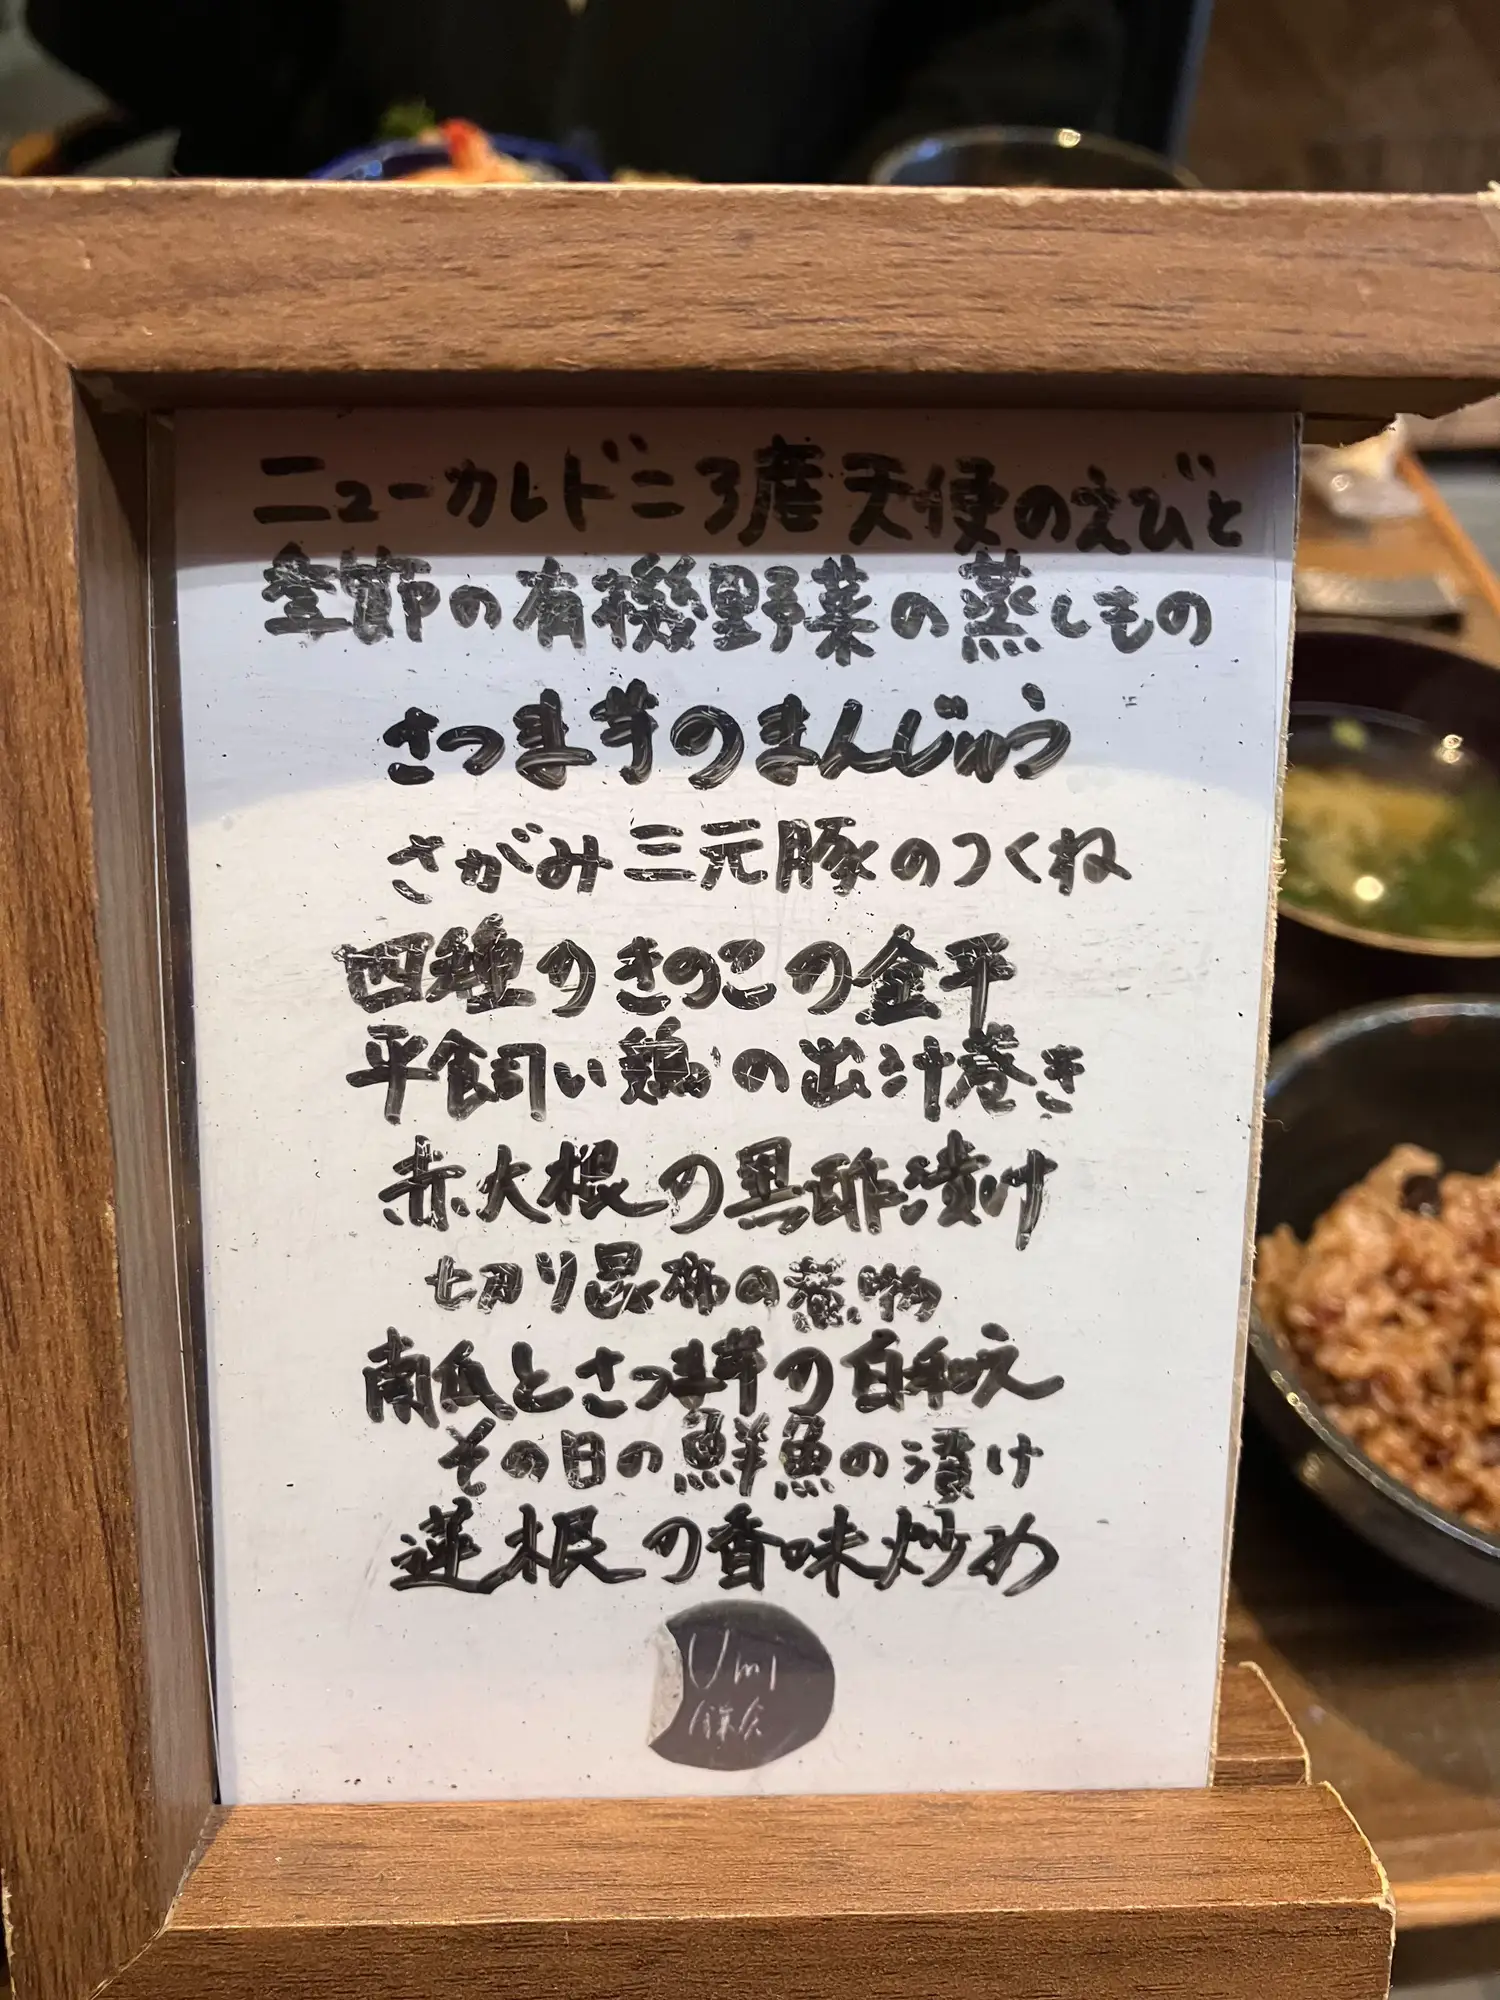 ニューカレドニア産天使のえびと
季節の有機野菜の蒸しもの
さつま芋のまんじゅう
さがみ三元豚のつくね
四種のきのこの金平
平飼い鶏の出汁巻き
赤大根の黒酢漬け
切り昆布の煮物
南瓜とさつま芋の白和え
その日の鮮魚の漬け
蓮根の香味炒め
Umi
鎌倉